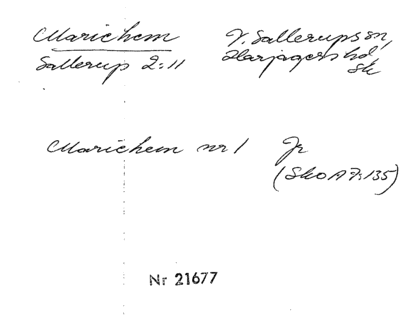 Marichem V. Sallerups sn,
Sallerup 2:11 Harjagers hd,
Sk
Marichem nr 1 Jr
(SkO A 7:135)
Nr 21677